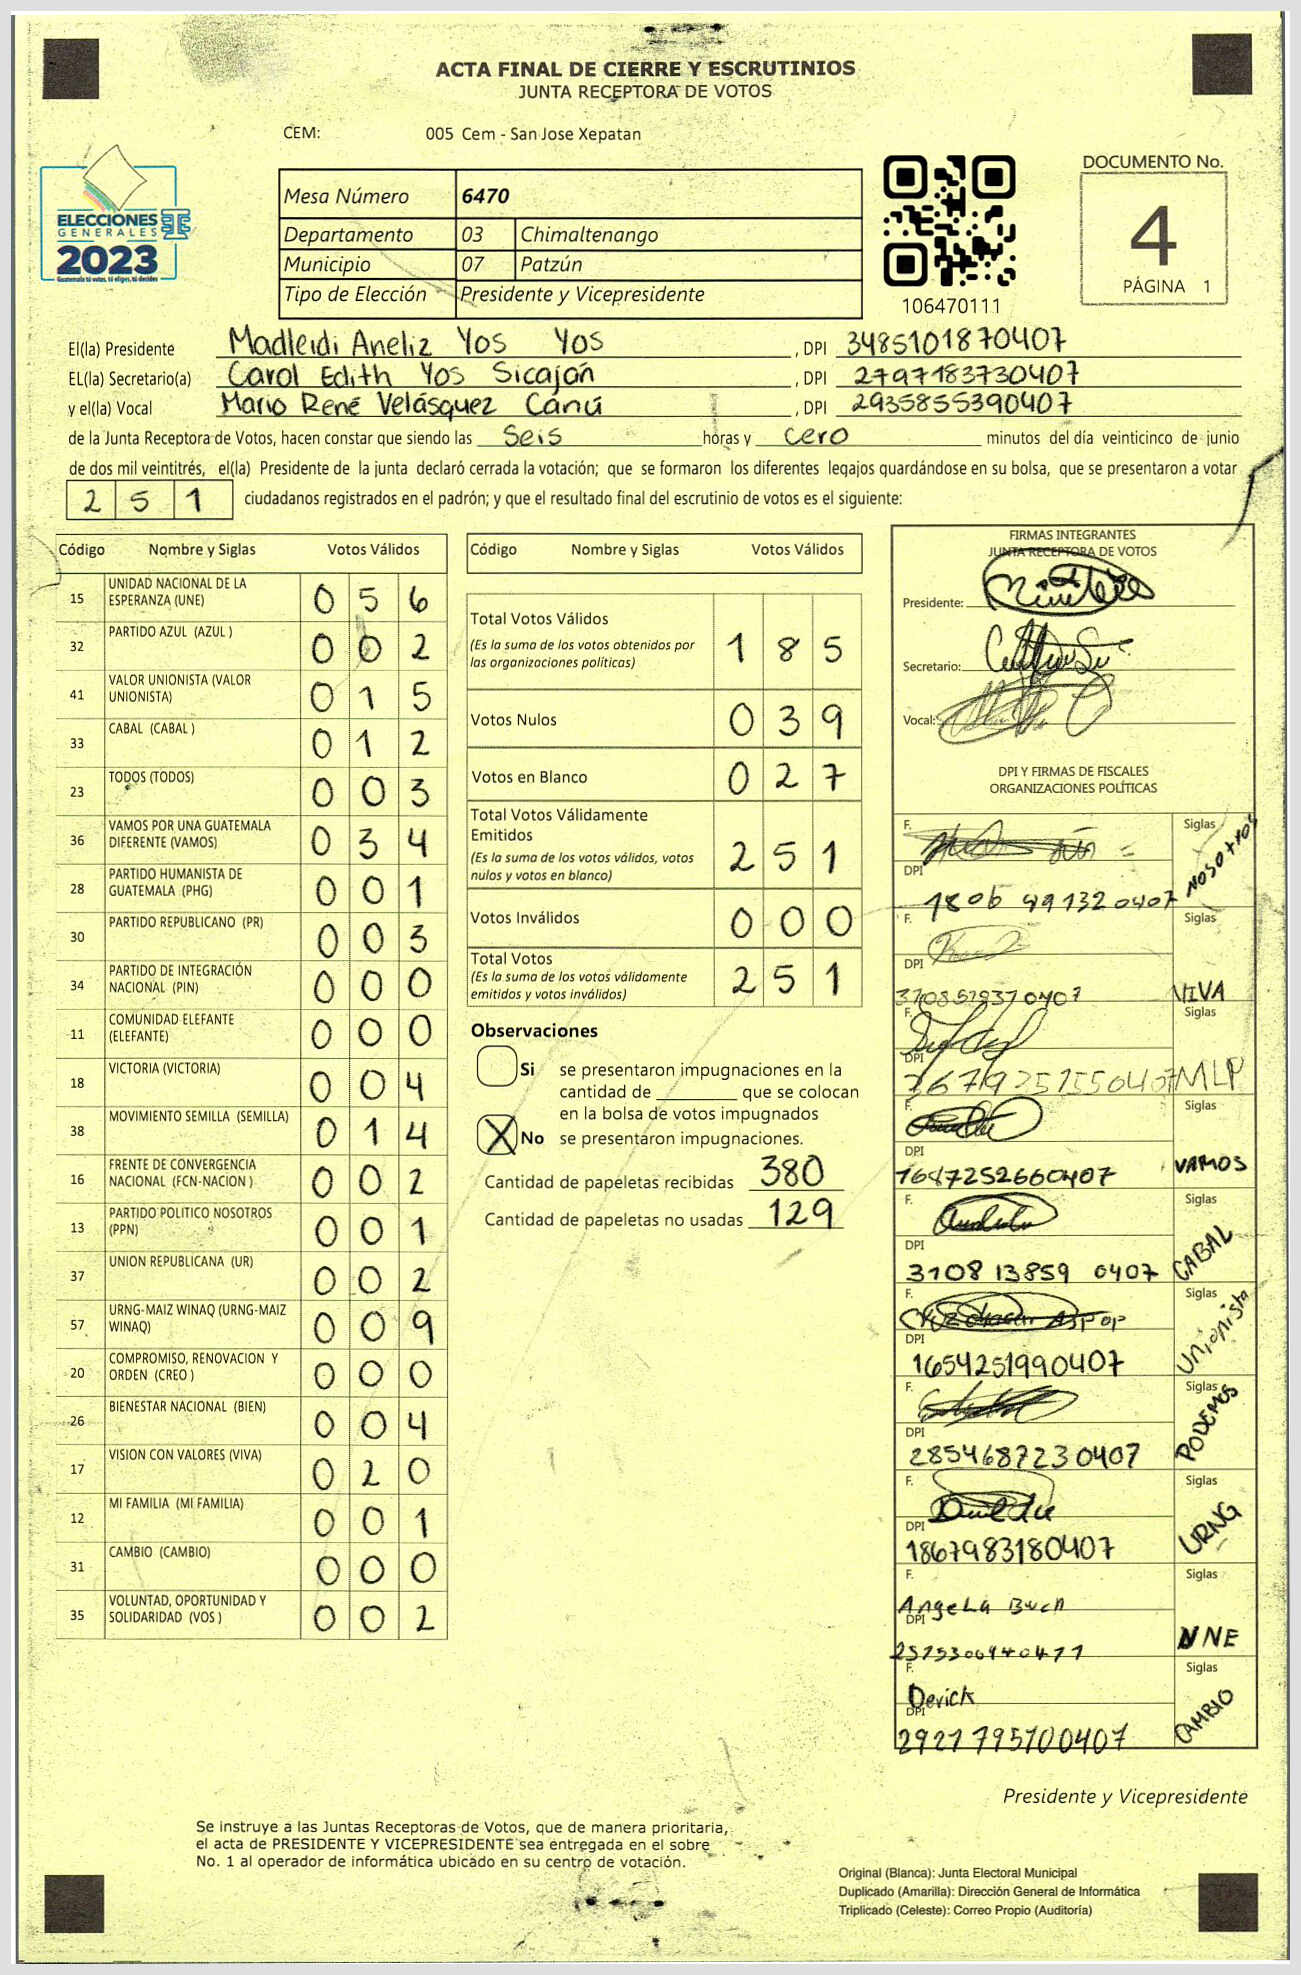 ACTA FINAL DE CIERRE Y ESCRUTINIOS
JUNTA RECEPTORA DE VOTOS
CEM: 005 Cem - San Jose Xepatan
ELECCIONES
GENERALES
2023
Guatemala tú votas, tú eliges, tú decides
Mesa Número 6470
Departamento 03 Chimaltenango
Municipio 07 Patzún
Tipo de Elección Presidente y Vicepresidente
106470111
DOCUMENTO No.
4
PÁGINA 1
El(la) Presidente Madleidi Aneliz Yos Yos , DPI 3485101870407
EL(la) Secretario(a) Carol Edith Yos Sicajan , DPI 2797183730407
y el(la) Vocal Mario René Velásquez Canú , DPI 2935855390407
de la Junta Receptora de Votos, hacen constar que siendo las Seis horas y cero minutos del día veinticinco de junio
de dos mil veintitrés, el(la) Presidente de la junta declaró cerrada la votación; que se formaron los diferentes legajos guardándose en su bolsa, que se presentaron a votar
251 ciudadanos registrados en el padrón; y que el resultado final del escrutinio de votos es el siguiente:
Código Nombre y Siglas Votos Válidos
15 UNIDAD NACIONAL DE LA ESPERANZA (UNE) 056
32 PARTIDO AZUL (AZUL ) 002
41 VALOR UNIONISTA (VALOR UNIONISTA) 015
33 CABAL (CABAL ) 012
23 TODOS (TODOS) 003
36 VAMOS POR UNA GUATEMALA DIFERENTE (VAMOS) 034
28 PARTIDO HUMANISTA DE GUATEMALA (PHG) 001
30 PARTIDO REPUBLICANO (PR) 003
34 PARTIDO DE INTEGRACIÓN NACIONAL (PIN) 000
11 COMUNIDAD ELEFANTE (ELEFANTE) 000
18 VICTORIA (VICTORIA) 004
38 MOVIMIENTO SEMILLA (SEMILLA) 014
16 FRENTE DE CONVERGENCIA NACIONAL (FCN-NACION ) 002
13 PARTIDO POLITICO NOSOTROS (PPN) 001
37 UNION REPUBLICANA (UR) 002
57 URNG-MAIZ WINAQ (URNG-MAIZ WINAQ) 009
20 COMPROMISO, RENOVACION Y ORDEN (CREO ) 000
26 BIENESTAR NACIONAL (BIEN) 004
17 VISION CON VALORES (VIVA) 020
12 MI FAMILIA (MI FAMILIA) 001
31 CAMBIO (CAMBIO) 000
35 VOLUNTAD, OPORTUNIDAD Y SOLIDARIDAD (VOS ) 002
Código Nombre y Siglas Votos Válidos
Total Votos Válidos 185
(Es la suma de los votos obtenidos por
las organizaciones políticas)
Votos Nulos 039
Votos en Blanco 027
Total Votos Válidamente
Emitidos 251
(Es la suma de los votos válidos, votos
nulos y votos en blanco)
Votos Inválidos 000
Total Votos 251
(Es la suma de los votos válidamente
emitidos y votos inválidos)
Observaciones
Si se presentaron impugnaciones en la
cantidad de ________ que se colocan
en la bolsa de votos impugnados
X No se presentaron impugnaciones.
Cantidad de papeletas recibidas 380
Cantidad de papeletas no usadas 129
FIRMAS INTEGRANTES
JUNTA RECEPTORA DE VOTOS
Presidente:
Secretario:
Vocal:
DPI Y FIRMAS DE FISCALES
ORGANIZACIONES POLÍTICAS
F. Siglas
DPI NOSOTROS
F. Siglas
DPI VIVA
F. Siglas
DPI MLP
F. Siglas
DPI 1687252660407 VAMOS
F. Siglas
DPI 3108 13859 0407 CABAL
F. Siglas
DPI 1654251990407 Unionista
F. Siglas
DPI 2854687230407 PODEMOS
F. Siglas
DPI 1867983180407 URNG
F. Angela Buch Siglas
DPI UNE
F. Derick Siglas
DPI 2921795100407 CAMBIO
Presidente y Vicepresidente
Se instruye a las Juntas Receptoras de Votos, que de manera prioritaria,
el acta de PRESIDENTE Y VICEPRESIDENTE sea entregada en el sobre
No. 1 al operador de informática ubicado en su centro de votación.
Original (Blanca): Junta Electoral Municipal
Duplicado (Amarilla): Dirección General de Informática
Triplicado (Celeste): Correo Propio (Auditoría)